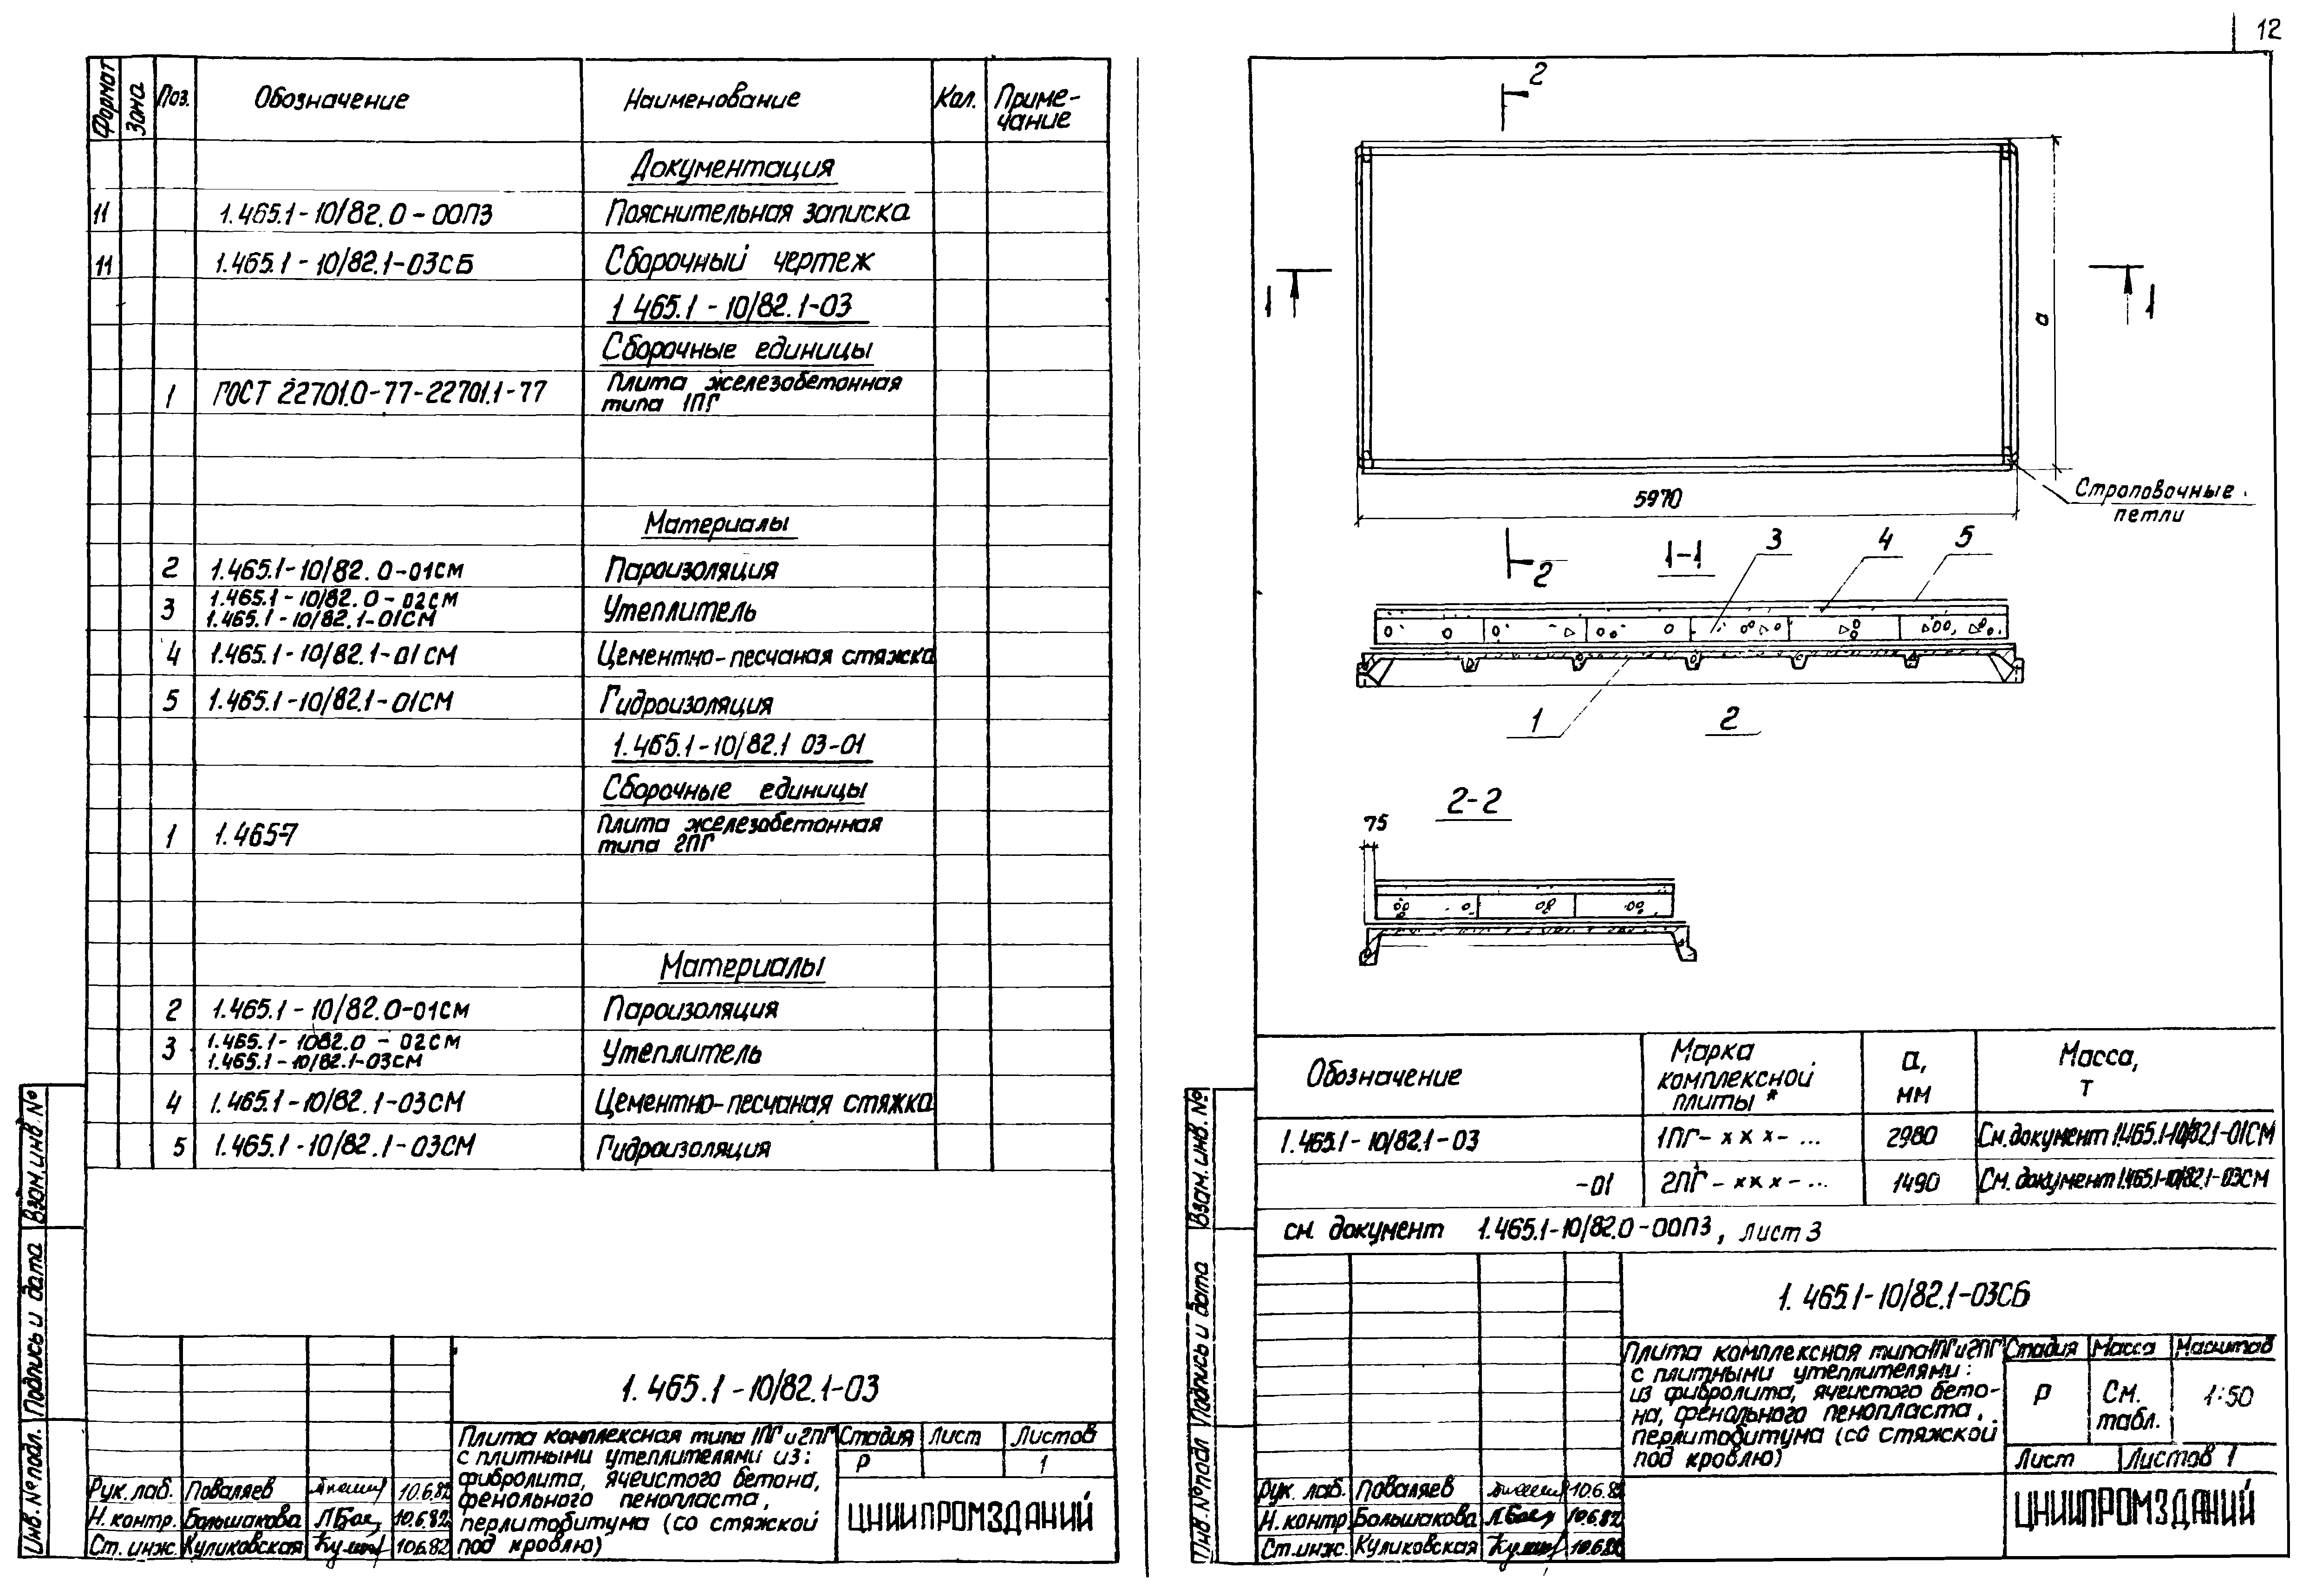 12
Формат
Зона
Поз.
Обозначение
Наименование
Кол.
Приме-
чание
Документация
11 1.465.1-10/82.0-00ПЗ Пояснительная записка
11 1.465.1-10/82.1-03СБ Сборочный чертеж
1 465.1-10/82.1-03
Сборочные единицы
1 ГОСТ 22701.0-77-22701.1-77 Плита железобетонная
типа 1ПГ
Материалы
2 1.465.1-10/82.0-01СМ Пароизоляция
3 1.465.1-10/82.0-02СМ Утеплитель
1.465.1-10/82.1-01СМ
4 1.465.1-10/82.1-01СМ Цементно-песчаная стяжка
5 1.465.1-10/82.1-01СМ Гидроизоляция
1.465.1-10/82.1 03-01
Сборочные единицы
1 1.465-7 Плита железобетонная
типа 2ПГ
Материалы
2 1.465.1-10/82.0-01СМ Пароизоляция
3 1.465.1-1082.0-02СМ Утеплитель
1.465.1-10/82.1-03СМ
4 1.465.1-10/82.1-03СМ Цементно-песчаная стяжка
5 1.465.1-10/82.1-03СМ Гидроизоляция
Взам.инв.№
Подпись и дата
Инв.№подл.
1.465.1-10/82.1-03
Плита комплексная типа 1ПГ и 2ПГ
с плитными утеплителями из:
фибролита, ячеистого бетона,
фенольного пенопласта,
перлитобитума (со стяжкой
под кровлю)
Стадия Лист Листов
Р 1
ЦНИИПРОМЗДАНИЙ
Рук.лаб. Поваляев 10.6.82
Н.контр. Большакова 10.6.82
Ст.инж. Куликовская 10.6.82
2
1 1
а
5970
Строповочные
петли
2
1-1
3 4 5
1 2
2-2
75
Обозначение
Марка
комплексной
плиты *
а,
мм
Масса,
т
1.465.1-10/82.1-03 1ПГ-ххх-... 2980 См.документ 1.465.1-10/82.1-01СМ
-01 2ПГ-ххх-... 1490 См.документ 1.465.1-10/82.1-03СМ
см. документ 1.465.1-10/82.0-00ПЗ, лист 3
Взам.инв.№
Подпись и дата
Инв.№подл
1.465.1-10/82.1-03СБ
Плита комплексная типа 1ПГ и 2ПГ
с плитными утеплителями:
из фибролита, ячеистого бето-
на, фенольного пенопласта,
перлитобитума (со стяжкой
под кровлю)
Стадия Масса Масштаб
Р См.
табл. 1:50
Лист Листов 1
ЦНИИПРОМЗДАНИЙ
Рук.лаб. Поваляев 10.6.82
Н.контр Большакова 10.6.82
Ст.инж. Куликовская 10.6.82